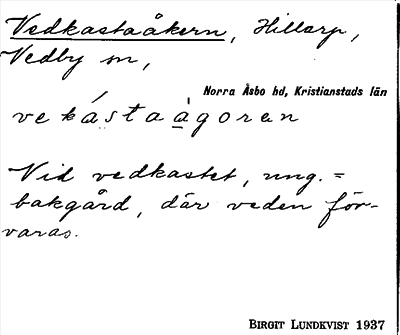 Vedkastaåkern, Hillarp,
Vedby sn,
Norra Åsbo hd, Kristianstads län
vekástaàgoran
Vid vedkastet, ung. =
bakgård, där veden för-
varas.
BIRGIT LUNDKVIST 1937